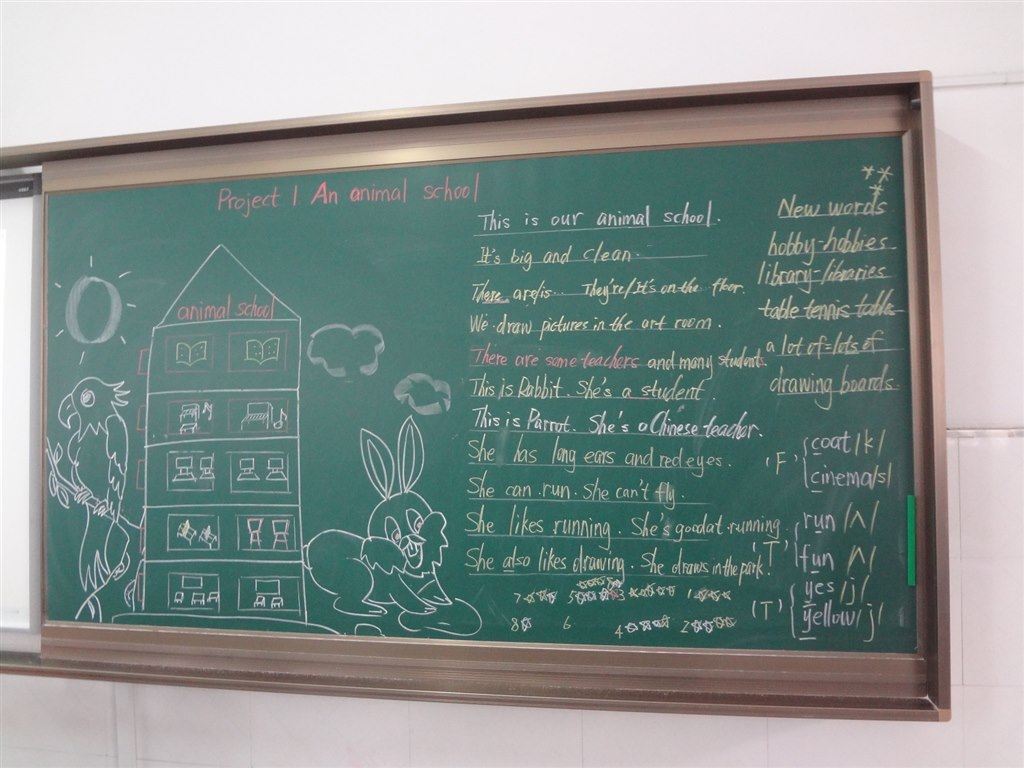 Project 1 An animal school
animal school
This is our animal school.
It's big and clean.
There are/is... They're/It's on the floor.
We draw pictures in the art room.
There are some teachers and many students.
This is Rabbit. She's a student.
This is Parrot. She's a Chinese teacher.
She has long ears and red eyes.
She can run. She can't fly.
She likes running. She's good at running.
She also likes drawing. She draws in the park.
7
5
3
1
8
6
4
2
New words
hobby-hobbies
library-libraries
table tennis table
a lot of=lots of
drawing boards
'F' coat /k/
cinema /s/
'T' run /ʌ/
fun /ʌ/
(T) yes /j/
yellow /j/